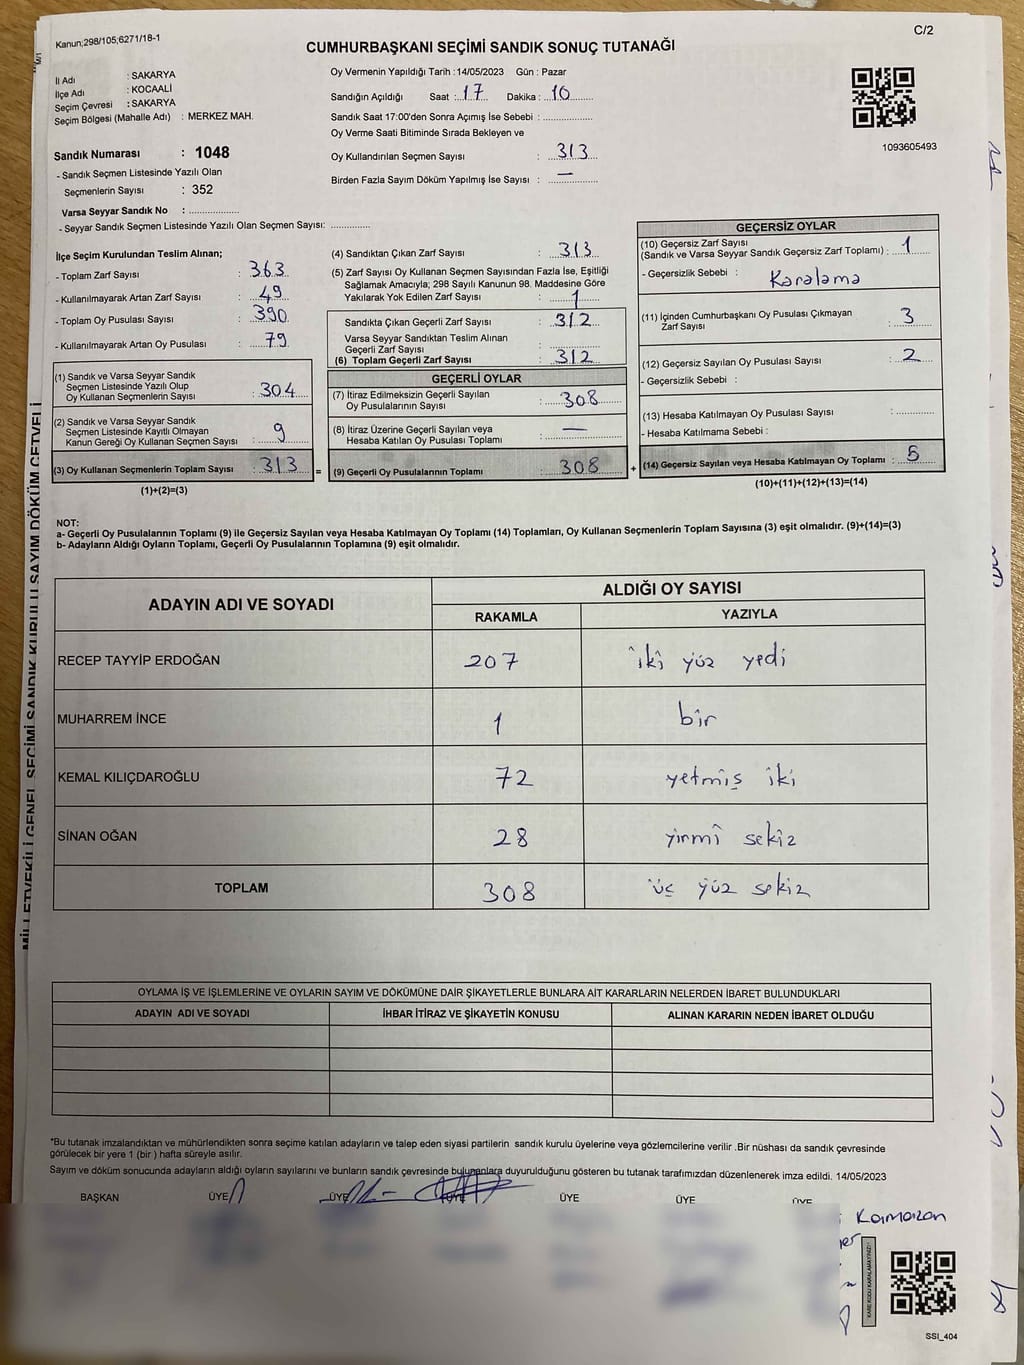 Kanun;298/105;6271/18-1
C/2
CUMHURBAŞKANI SEÇİMİ SANDIK SONUÇ TUTANAĞI
İl Adı : SAKARYA
İlçe Adı : KOCAALİ
Seçim Çevresi : SAKARYA
Seçim Bölgesi (Mahalle Adı) : MERKEZ MAH.
Oy Vermenin Yapıldığı Tarih :14/05/2023 Gün : Pazar
Sandığın Açıldığı Saat :..17.. Dakika :..10..
Sandık Saat 17:00'den Sonra Açımış İse Sebebi :
Oy Verme Saati Bitiminde Sırada Bekleyen ve
Oy Kullandırılan Seçmen Sayısı : 313
Birden Fazla Sayım Döküm Yapılmış İse Sayısı : —
1093605493
Sandık Numarası : 1048
- Sandık Seçmen Listesinde Yazılı Olan
Seçmenlerin Sayısı : 352
Varsa Seyyar Sandık No :
- Seyyar Sandık Seçmen Listesinde Yazılı Olan Seçmen Sayısı:
İlçe Seçim Kurulundan Teslim Alınan;
- Toplam Zarf Sayısı : 363
- Kullanılmayarak Artan Zarf Sayısı : 49
- Toplam Oy Pusulası Sayısı : 390
- Kullanılmayarak Artan Oy Pusulası : 79
(1) Sandık ve Varsa Seyyar Sandık
Seçmen Listesinde Yazılı Olup
Oy Kullanan Seçmenlerin Sayısı : 304
(2) Sandık ve Varsa Seyyar Sandık
Seçmen Listesinde Kayıtlı Olmayan
Kanun Gereği Oy Kullanan Seçmen Sayısı : 9
(3) Oy Kullanan Seçmenlerin Toplam Sayısı : 313 =
(1)+(2)=(3)
(4) Sandıktan Çıkan Zarf Sayısı : 313
(5) Zarf Sayısı Oy Kullanan Seçmen Sayısından Fazla İse, Eşitliği
Sağlamak Amacıyla; 298 Sayılı Kanunun 98. Maddesine Göre
Yakılarak Yok Edilen Zarf Sayısı : 1
Sandıkta Çıkan Geçerli Zarf Sayısı : 312
Varsa Seyyar Sandıktan Teslim Alınan
Geçerli Zarf Sayısı :
(6) Toplam Geçerli Zarf Sayısı : 312
GEÇERLİ OYLAR
(7) İtiraz Edilmeksizin Geçerli Sayılan
Oy Pusulalarının Sayısı : 308
(8) İtiraz Üzerine Geçerli Sayılan veya
Hesaba Katılan Oy Pusulası Toplamı : —
(9) Geçerli Oy Pusulalarının Toplamı : 308 +
GEÇERSİZ OYLAR
(10) Geçersiz Zarf Sayısı
(Sandık ve Varsa Seyyar Sandık Geçersiz Zarf Toplamı) : 1
- Geçersizlik Sebebi : Karalama
(11) İçinden Cumhurbaşkanı Oy Pusulası Çıkmayan
Zarf Sayısı : 3
(12) Geçersiz Sayılan Oy Pusulası Sayısı : 2
- Geçersizlik Sebebi :
(13) Hesaba Katılmayan Oy Pusulası Sayısı :
- Hesaba Katılmama Sebebi :
(14) Geçersiz Sayılan veya Hesaba Katılmayan Oy Toplamı : 5
(10)+(11)+(12)+(13)=(14)
NOT:
a- Geçerli Oy Pusulalarının Toplamı (9) ile Geçersiz Sayılan veya Hesaba Katılmayan Oy Toplamı (14) Toplamları, Oy Kullanan Seçmenlerin Toplam Sayısına (3) eşit olmalıdır. (9)+(14)=(3)
b- Adayların Aldığı Oyların Toplamı, Geçerli Oy Pusulalarının Toplamına (9) eşit olmalıdır.
ADAYIN ADI VE SOYADI
ALDIĞI OY SAYISI
RAKAMLA YAZIYLA
RECEP TAYYİP ERDOĞAN 207 iki yüz yedi
MUHARREM İNCE 1 bir
KEMAL KILIÇDAROĞLU 72 yetmiş iki
SİNAN OĞAN 28 yirmi sekiz
TOPLAM 308 üç yüz sekiz
OYLAMA İŞ VE İŞLEMLERİNE VE OYLARIN SAYIM VE DÖKÜMÜNE DAİR ŞİKAYETLERLE BUNLARA AİT KARARLARIN NELERDEN İBARET BULUNDUKLARI
ADAYIN ADI VE SOYADI İHBAR İTİRAZ VE ŞİKAYETİN KONUSU ALINAN KARARIN NEDEN İBARET OLDUĞU
*Bu tutanak imzalandıktan ve mühürlendikten sonra seçime katılan adayların ve talep eden siyasi partilerin sandık kurulu üyelerine veya gözlemcilerine verilir .Bir nüshası da sandık çevresinde
görülecek bir yere 1 (bir ) hafta süreyle asılır.
Sayım ve döküm sonucunda adayların aldığı oyların sayılarını ve bunların sandık çevresinde bulunanlara duyurulduğunu gösteren bu tutanak tarafımızdan düzenlenerek imza edildi. 14/05/2023
BAŞKAN ÜYE ÜYE ÜYE ÜYE ÜYE ÜYE
Ramazan
KARE KODU KARALAMAYINIZ!
SSI_404
MİLLETVEKİLİ GENEL SEÇİMİ SANDIK KURULU SAYIM DÖKÜM CETVELİ